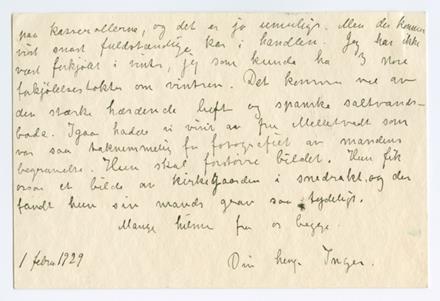 paa kasserollerne, og det er jo umuligt. Men der kommer
vist snart fuldstændige kar i handlen. Jeg har ikke
vært forkjølt i vinter, jeg som kunde ha 3 store
forkjølelsestokter om vintren. Det kommer nu av
den stærke hærdende luft og spanske saltvands-
bade. Igaar hadde vi visit av fru Melletvedt som
var saa taknemmelig for fotografiet av mandens
begravelse. Hun skal forstørre bildet. Hun fik
ogsaa et bilde av kirkegaarden i snedrakt, og der
fandt hun sin mands grav saa tydeligt.
Mange hilsner fra os begge.
1 febru 1929
Din heng. Inger.